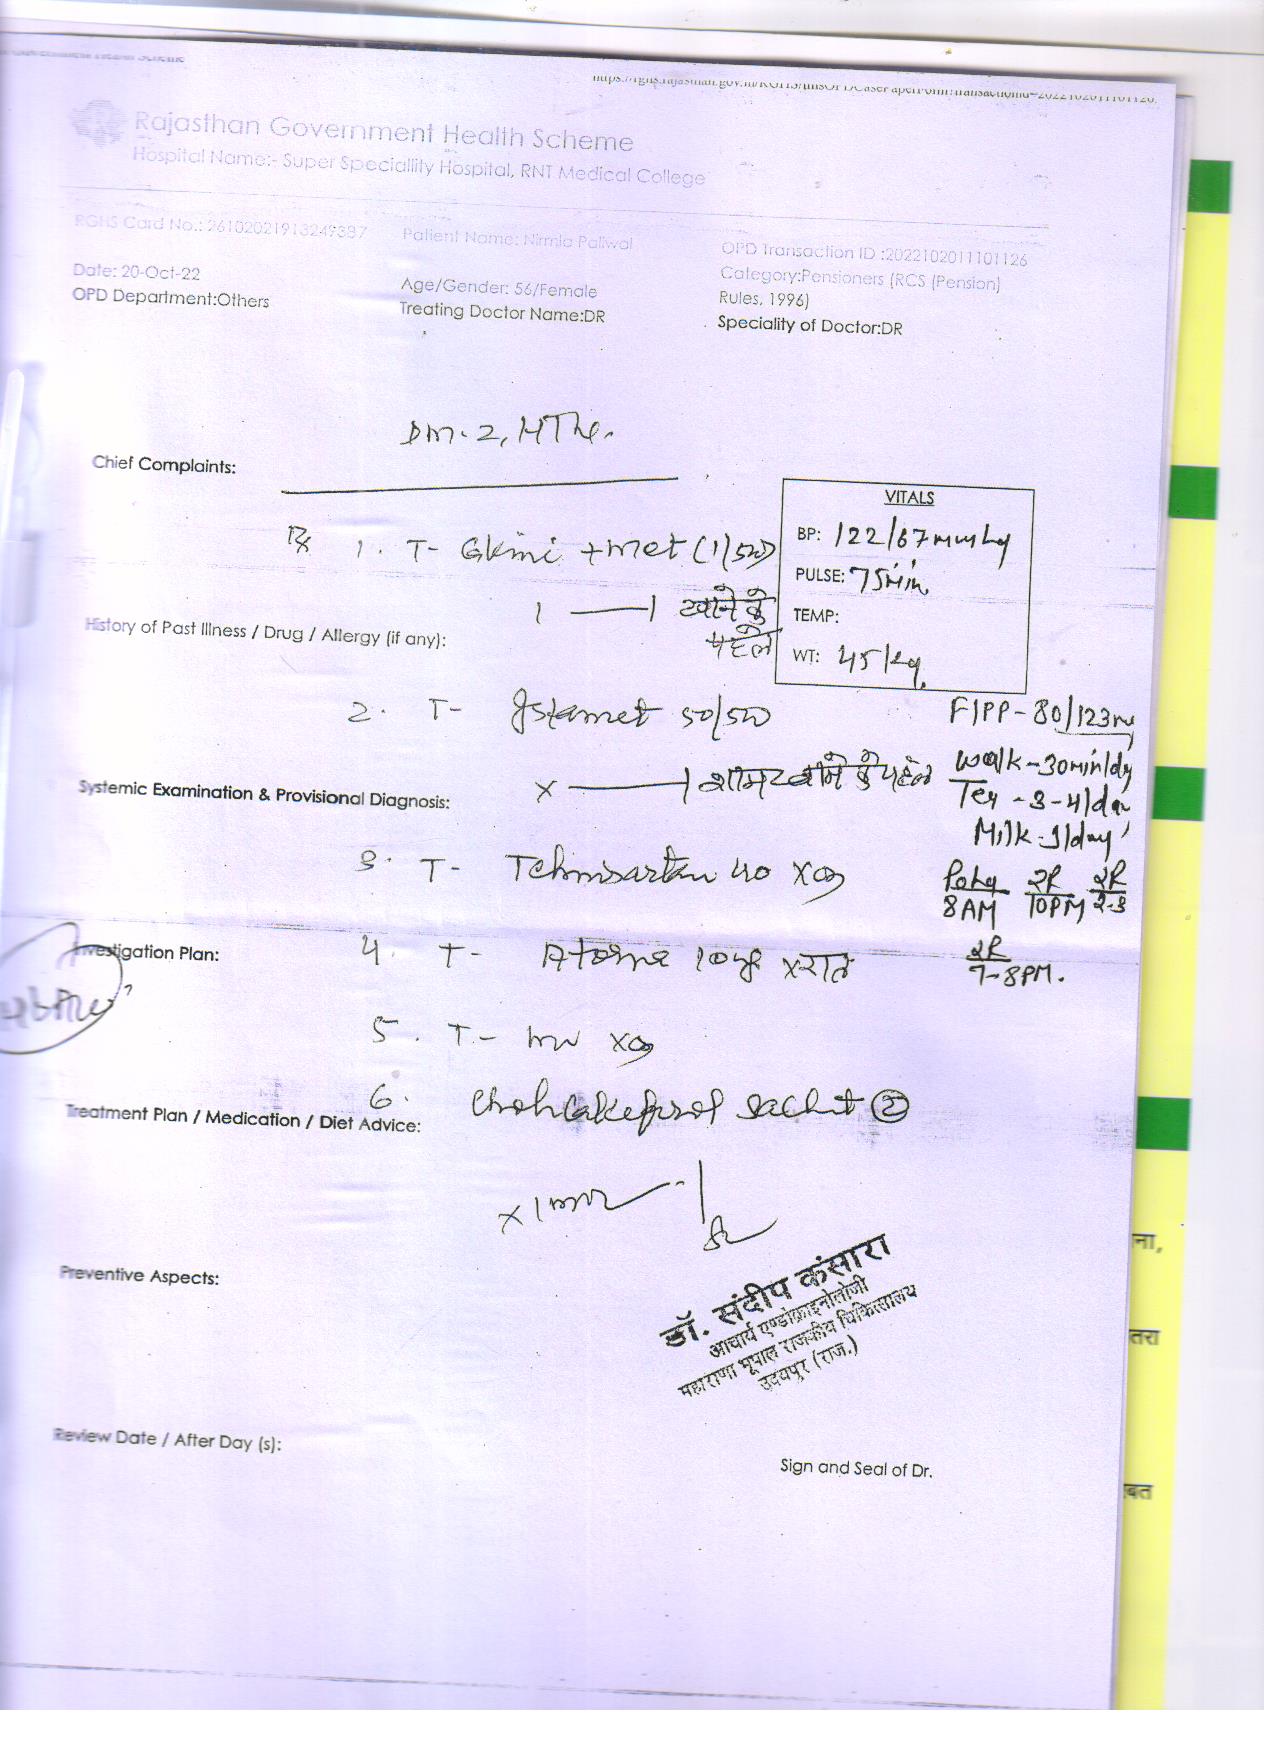 Rajasthan Government Health Scheme
Hospital Name:- Super Speciallity Hospital, RNT Medical College
RGHS Card No.: 26102021913249387
Patient Name: Nirmla Paliwal
OPD Transaction ID :2022102011101126
Date: 20-Oct-22
Age/Gender: 56/Female
Category:Pensioners (RCS (Pension)
Rules, 1996)
OPD Department:Others
Treating Doctor Name:DR
Speciality of Doctor:DR
DM-2, HTN.
Chief Complaints:
VITALS
BP: 122/67mmHg
PULSE: 75/min
TEMP:
WT: 45/kg.
1. T- Glimi + met (1/500)
1 — 1 खाने के
पहले
History of Past Illness / Drug / Allergy (if any):
2. T- Istamet 50/500
x — 1 शाम खाने के पहले
F/PP - 80/123
Walk - 30min/dy
- 3-4/day
Milk - 1/day
Systemic Examination & Provisional Diagnosis:
3. T- Telmisartan 40 x
8AM 10PM 2-3
2R
7-8PM.
Investigation Plan:
4. T- 10mg x रात
5. T- x
6. Cholecalciferol Sachet ②
Treatment Plan / Medication / Diet Advice:
Preventive Aspects:
डॉ. संदीप कंसारा
आचार्य एण्डोक्राइनोलोजी
महाराणा भूपाल राजकीय चिकित्सालय
उदयपुर (राज.)
Review Date / After Day (s):
Sign and Seal of Dr.
ना,
तरा
बत